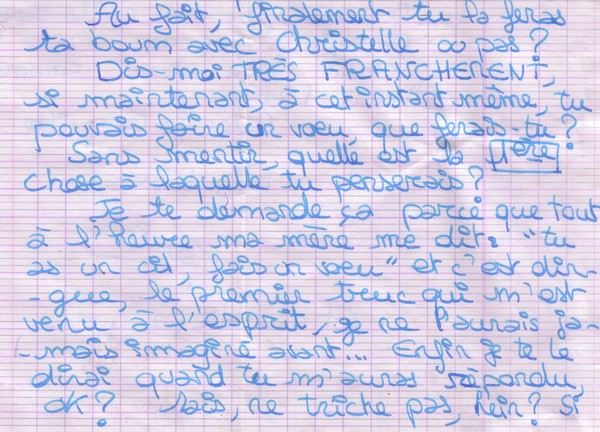 Au fait, finalement tu la feras
ta boum avec Christelle ou pas ?
Dis-moi TRÈS FRANCHEMENT,
si maintenant, à cet instant même, tu
pouvais faire un voeu, que ferais-tu ?
Sans mentir, quelle est la 1ère
chose à laquelle tu penserais ?
Je te demande ça parce que tout
à l'heure ma mère me dit : "tu
as un cil, fais un voeu" et c'est din-
-gue, le premier truc qui m'est
venu à l'esprit, je ne l'aurais ja-
-mais imaginé avant... Enfin je te le
dirai quand tu m'auras répondu,
OK ? Mais, ne triche pas, hein ? Si